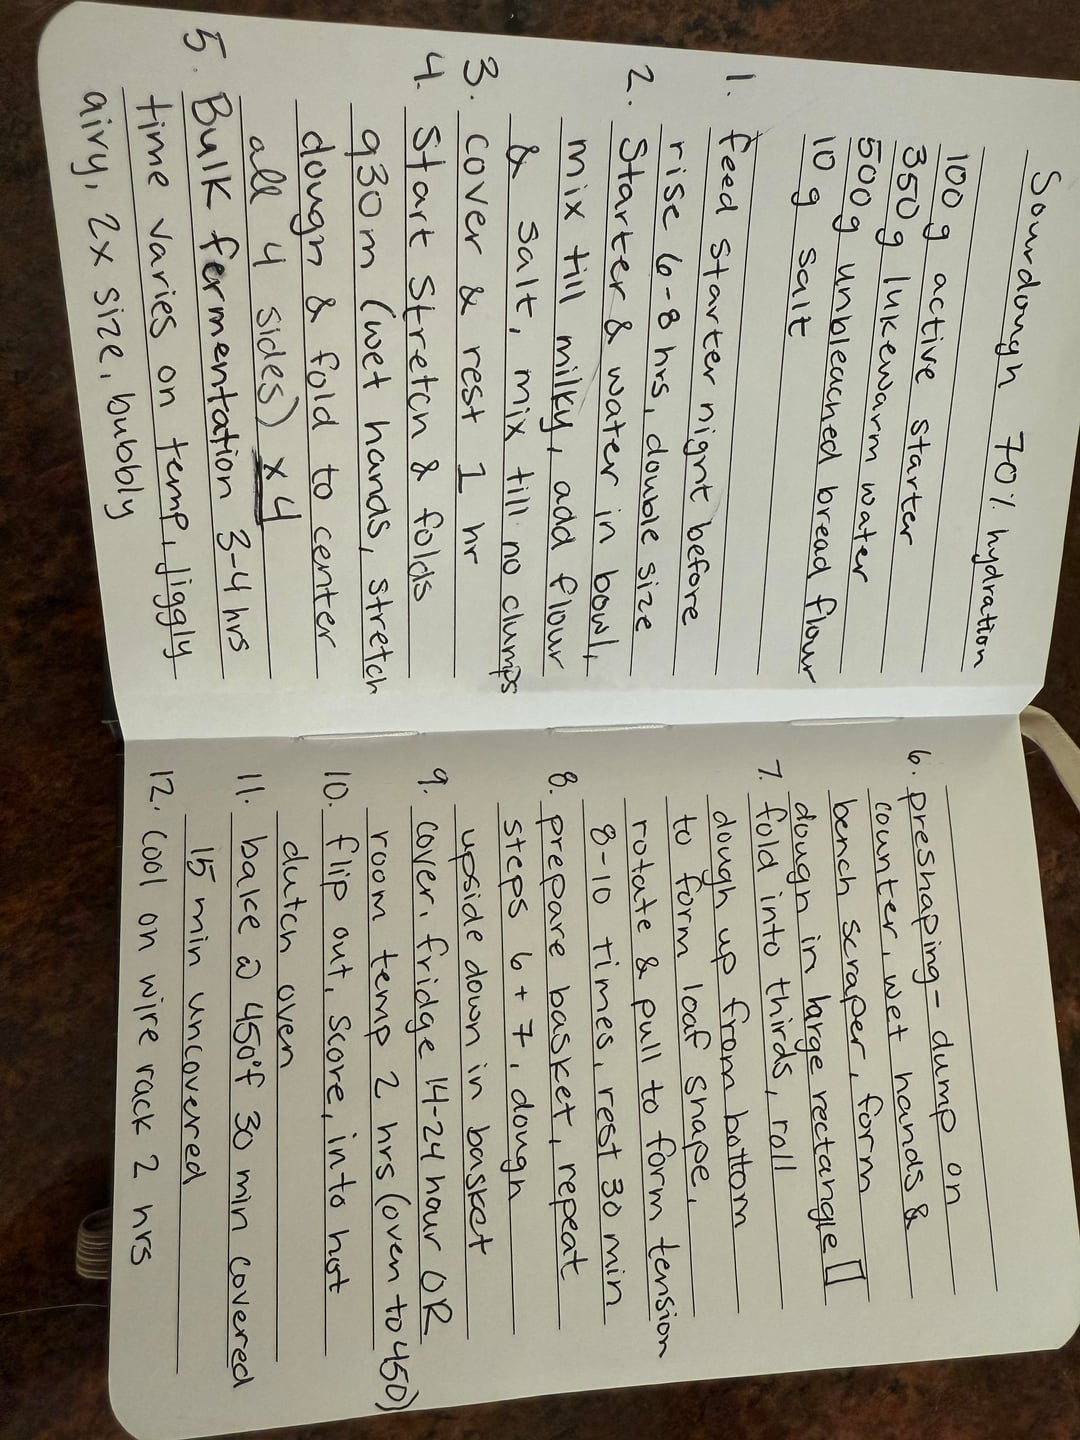 Sourdough 70% hydration
100 g active starter
350 g lukewarm water
500 g unbleached bread flour
10 g salt
1. feed starter night before
rise 6-8 hrs, double size
2. Starter & water in bowl,
mix till milky, add flour
& salt, mix till no clumps
3. cover & rest 1 hr
4. Start stretch & folds
q30m (wet hands, stretch
dough & fold to center
all 4 sides) x4
5. Bulk fermentation 3-4 hrs
time varies on temp, jiggly
airy, 2x size, bubbly
6. preshaping - dump on
counter, wet hands &
bench scraper, form
dough in large rectangle ▯
7. fold into thirds, roll
dough up from bottom
to form loaf shape,
rotate & pull to form tension
8-10 times, rest 30 min
8. prepare basket, repeat
steps 6 + 7, dough
upside down in basket
9. cover, fridge 14-24 hour OR
room temp 2 hrs (oven to 450)
10. flip out, score, into hot
dutch oven
11. bake @ 450°f 30 min covered
15 min uncovered
12. Cool on wire rack 2 hrs